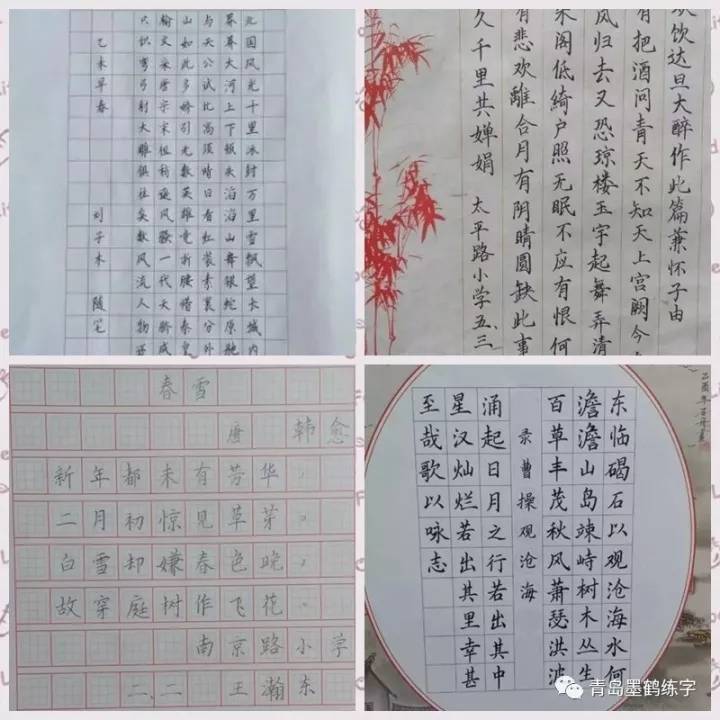 北国风光千里冰封万里雪飘望长城内
莽莽大河上下顿失滔滔山舞银蛇原驰
与天公试比高须晴日看红装素裹分外
山如此多娇引无数英雄竞折腰惜秦皇
输文采唐宗宋祖稍逊风骚一代天骄成
只识弯弓射大雕俱往矣数风流人物还
乙未早春 刘子木 随笔
欢饮达旦大醉作此篇兼怀子由
有把酒问青天不知天上宫阙今
风归去又恐琼楼玉宇起舞弄清
朱阁低绮户照无眠不应有恨何
有悲欢離合月有阴晴圆缺此事
久千里共婵娟 太平路小学五.三
春雪
唐 韩愈
新年都未有芳华,
二月初惊见草芽。
白雪却嫌春色晚,
故穿庭树作飞花。
南京路小学
二.二 王瀚东
东临碣石以观沧海水何
澹澹山岛竦峙树木丛生
百草丰茂秋风萧瑟洪波
录曹操观沧海
涌起日月之行若出其中
星汉灿烂若出其里幸甚
至哉歌以咏志
青岛墨鹤练字